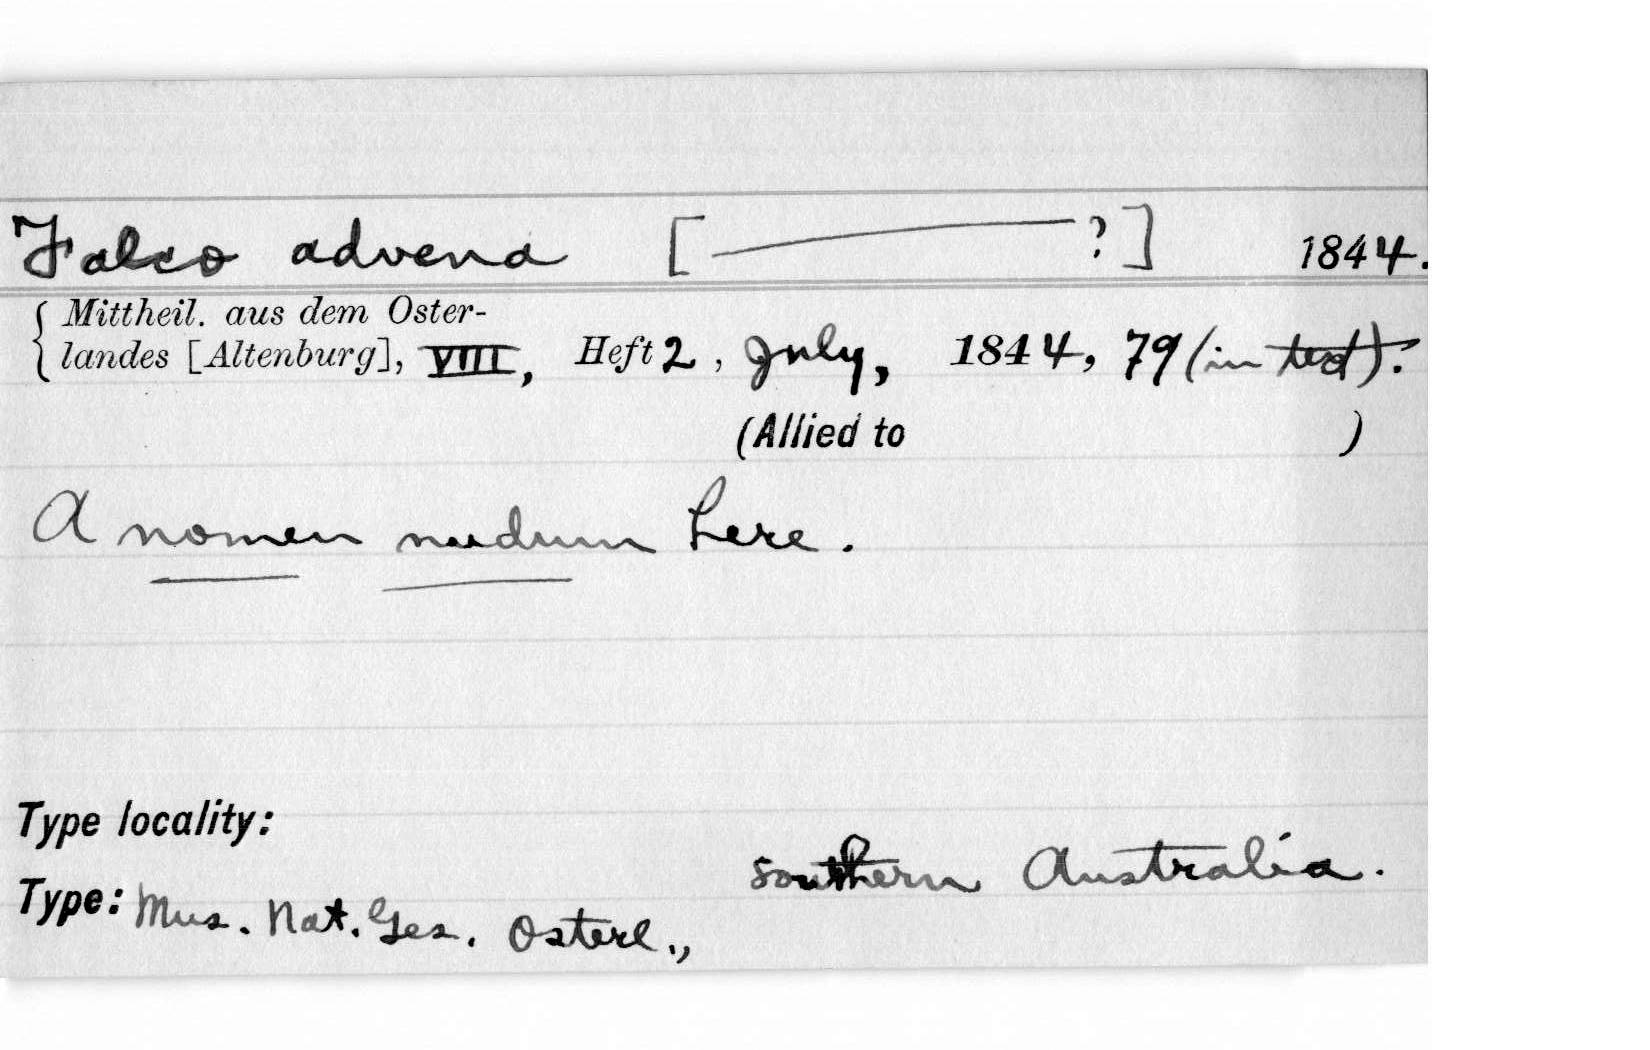 Falco advena [ ——— ? ] 1844.
Mittheil. aus dem Oster-
landes [Altenburg], VIII, Heft 2, July, 1844, 79 (in text).
(Allied to )
A nomen nudum here.
Type locality:
southern Australia.
Type: Mus. Nat. Ges. Osterl.,